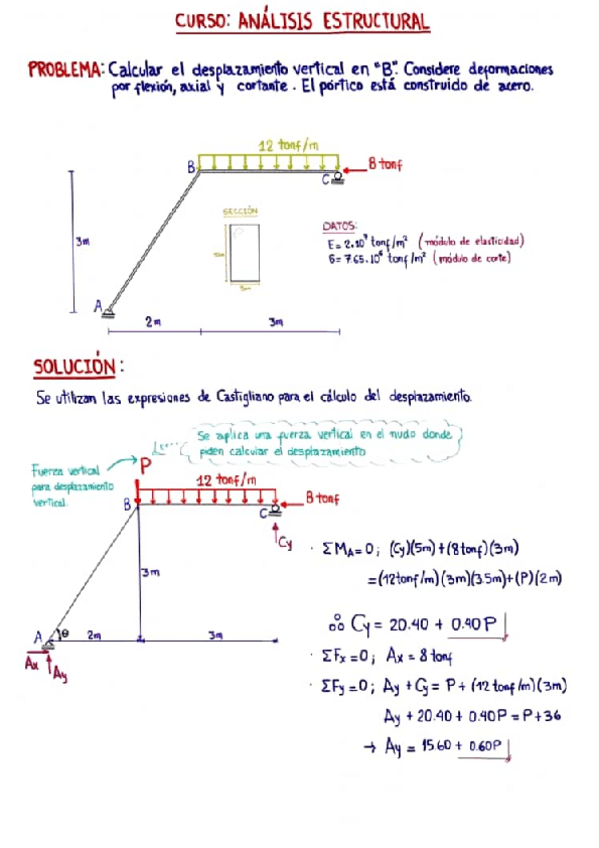 CURSO: ANÁLISIS ESTRUCTURAL
PROBLEMA: Calcular el desplazamiento vertical en "B". Considere deformaciones
por flexión, axial y cortante. El pórtico está construido de acero.
12 tonf/m
B
C
8 tonf
3m
SECCIÓN
DATOS:
E= 2.10⁷ tonf/m² (módulo de elasticidad)
G= 7.65.10⁶ tonf/m² (módulo de corte)
A
2m
3m
SOLUCIÓN:
Se utilizan las expresiones de Castigliano para el cálculo del desplazamiento.
Se aplica una fuerza vertical en el nudo donde
piden calcular el desplazamiento
Fuerza vertical
para desplazamiento
vertical.
P
12 tonf/m
B
C
8 tonf
Cy
3m
A
θ
2m
3m
Ax
Ay
· ΣMA=0; (Cy)(5m)+(8tonf)(3m)
=(12tonf/m)(3m)(3.5m)+(P)(2m)
∴ Cy = 20.40 + 0.40P
· ΣFx=0; Ax = 8 tonf
· ΣFy=0; Ay + Cy = P + (12 tonf/m)(3m)
Ay + 20.40 + 0.40P = P+36
→ Ay = 15.60 + 0.60P